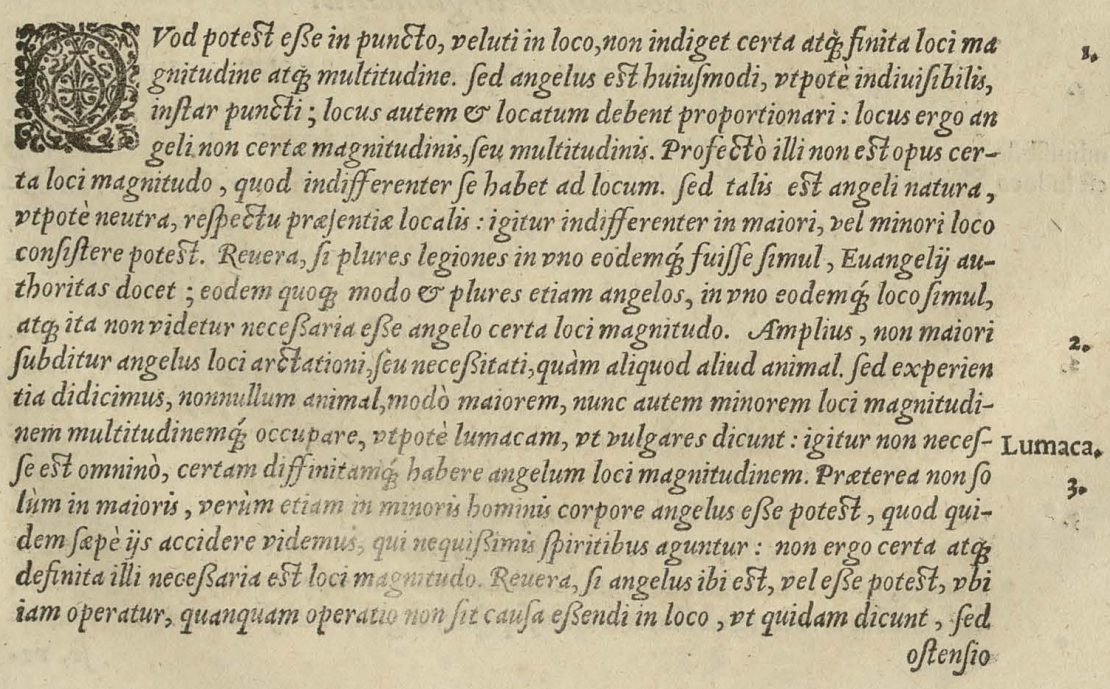 QVod potest esse in puncto, veluti in loco, non indiget certa atq; finita loci ma 1.
gnitudine atq; multitudine. sed angelus est huiusmodi, vtpotè indiuisibilis,
instar puncti ; locus autem & locatum debent proportionari : locus ergo an
geli non certæ magnitudinis, seu multitudinis. Profectò illi non est opus cer-
ta loci magnitudo, quod indifferenter se habet ad locum. sed talis est angeli natura,
vtpotè neutra, respectu præsentiæ localis : igitur indifferenter in maiori, vel minori loco
consistere potest. Reuera, si plures legiones in vno eodemq́; fuisse simul, Euangelij au-
thoritas docet ; eodem quoq; modo & plures etiam angelos, in vno eodemq́; loco simul,
atq; ita non videtur necessaria esse angelo certa loci magnitudo. Amplius, non maiori
subditur angelus loci arctationi, seu necessitati, quàm aliquod aliud animal. sed experien 2.
tia didicimus, nonnullum animal, modò maiorem, nunc autem minorem loci magnitudi-
nem multitudinemq́; occupare, vtpotè lumacam, vt vulgares dicunt : igitur non neces- Lumaca.
se est omninò, certam diffinitamq́; habere angelum loci magnitudinem. Præterea non so 3.
lùm in maioris, verùm etiam in minoris hominis corpore angelus esse potest, quod qui-
dem sæpè ijs accidere videmus, qui nequissimis spiritibus aguntur : non ergo certa atq;
definita illi necessaria est loci magnitudo. Reuera, si angelus ibi est, vel esse potest, vbi
iam operatur, quanquam operatio non sit causa essendi in loco, vt quidam dicunt, sed
ostensio